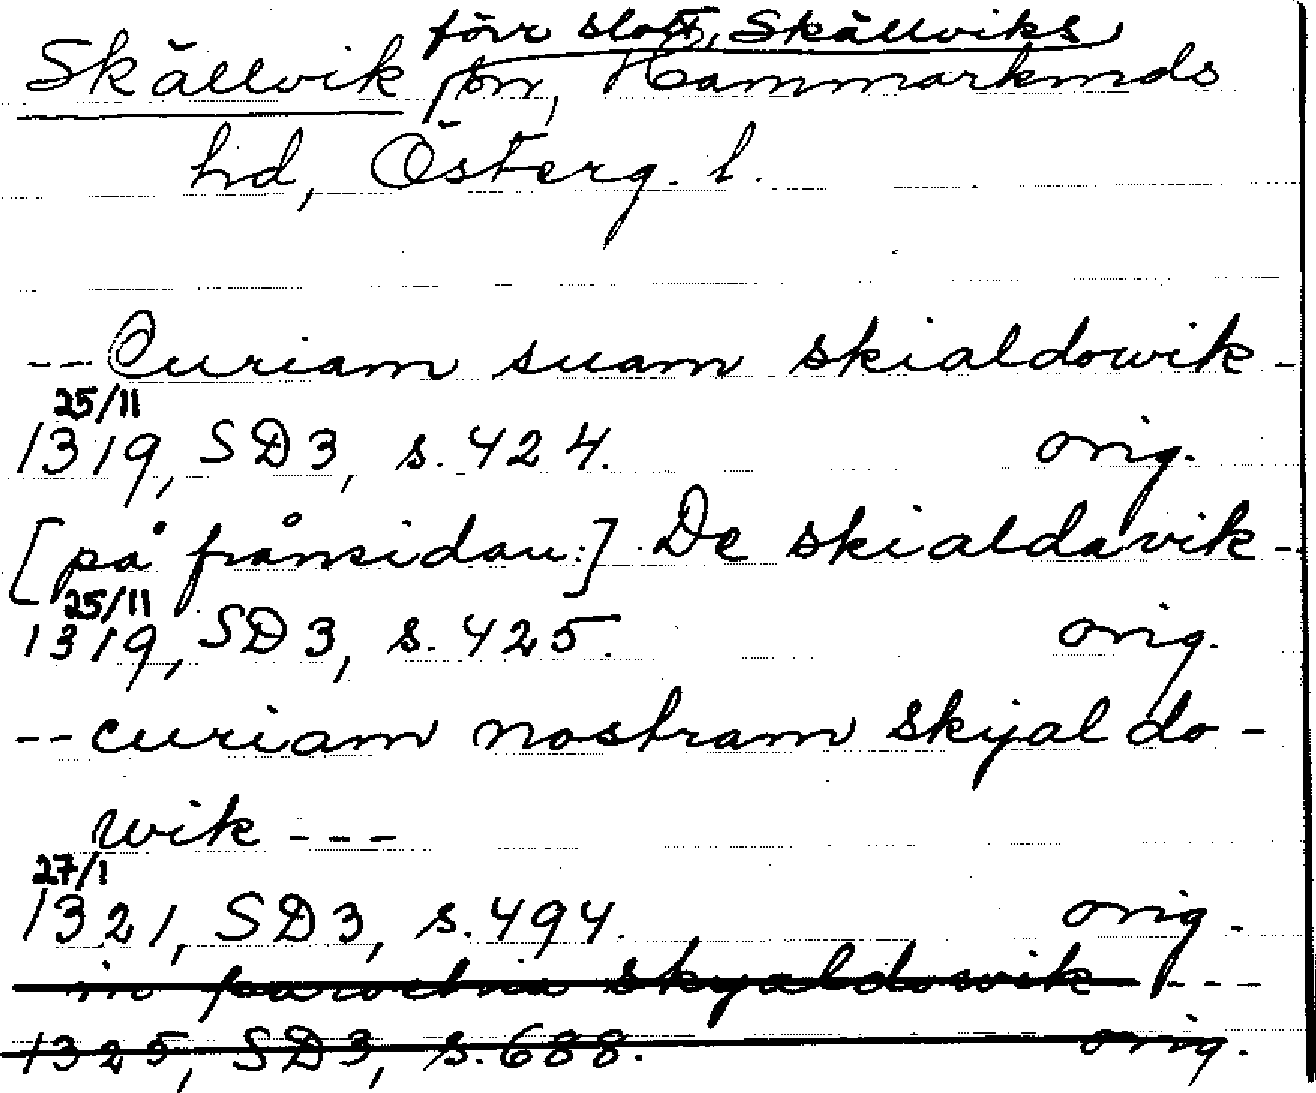 förr slott, Skällviks
Skällvik sn, Hammarkinds
hd, Österg. l.
-- Curiam suam skialdowik -
25/11
1319, SD3, s. 424. orig.
[på frånsidan:] De skialdavik --
25/11
1319, SD3, s. 425. orig.
-- curiam nostram skyaldo -
wik ---
27/1
1321, SD3, s. 494. orig.
in parochia skyaldowik ---
1325, SD3, s. 688. orig.